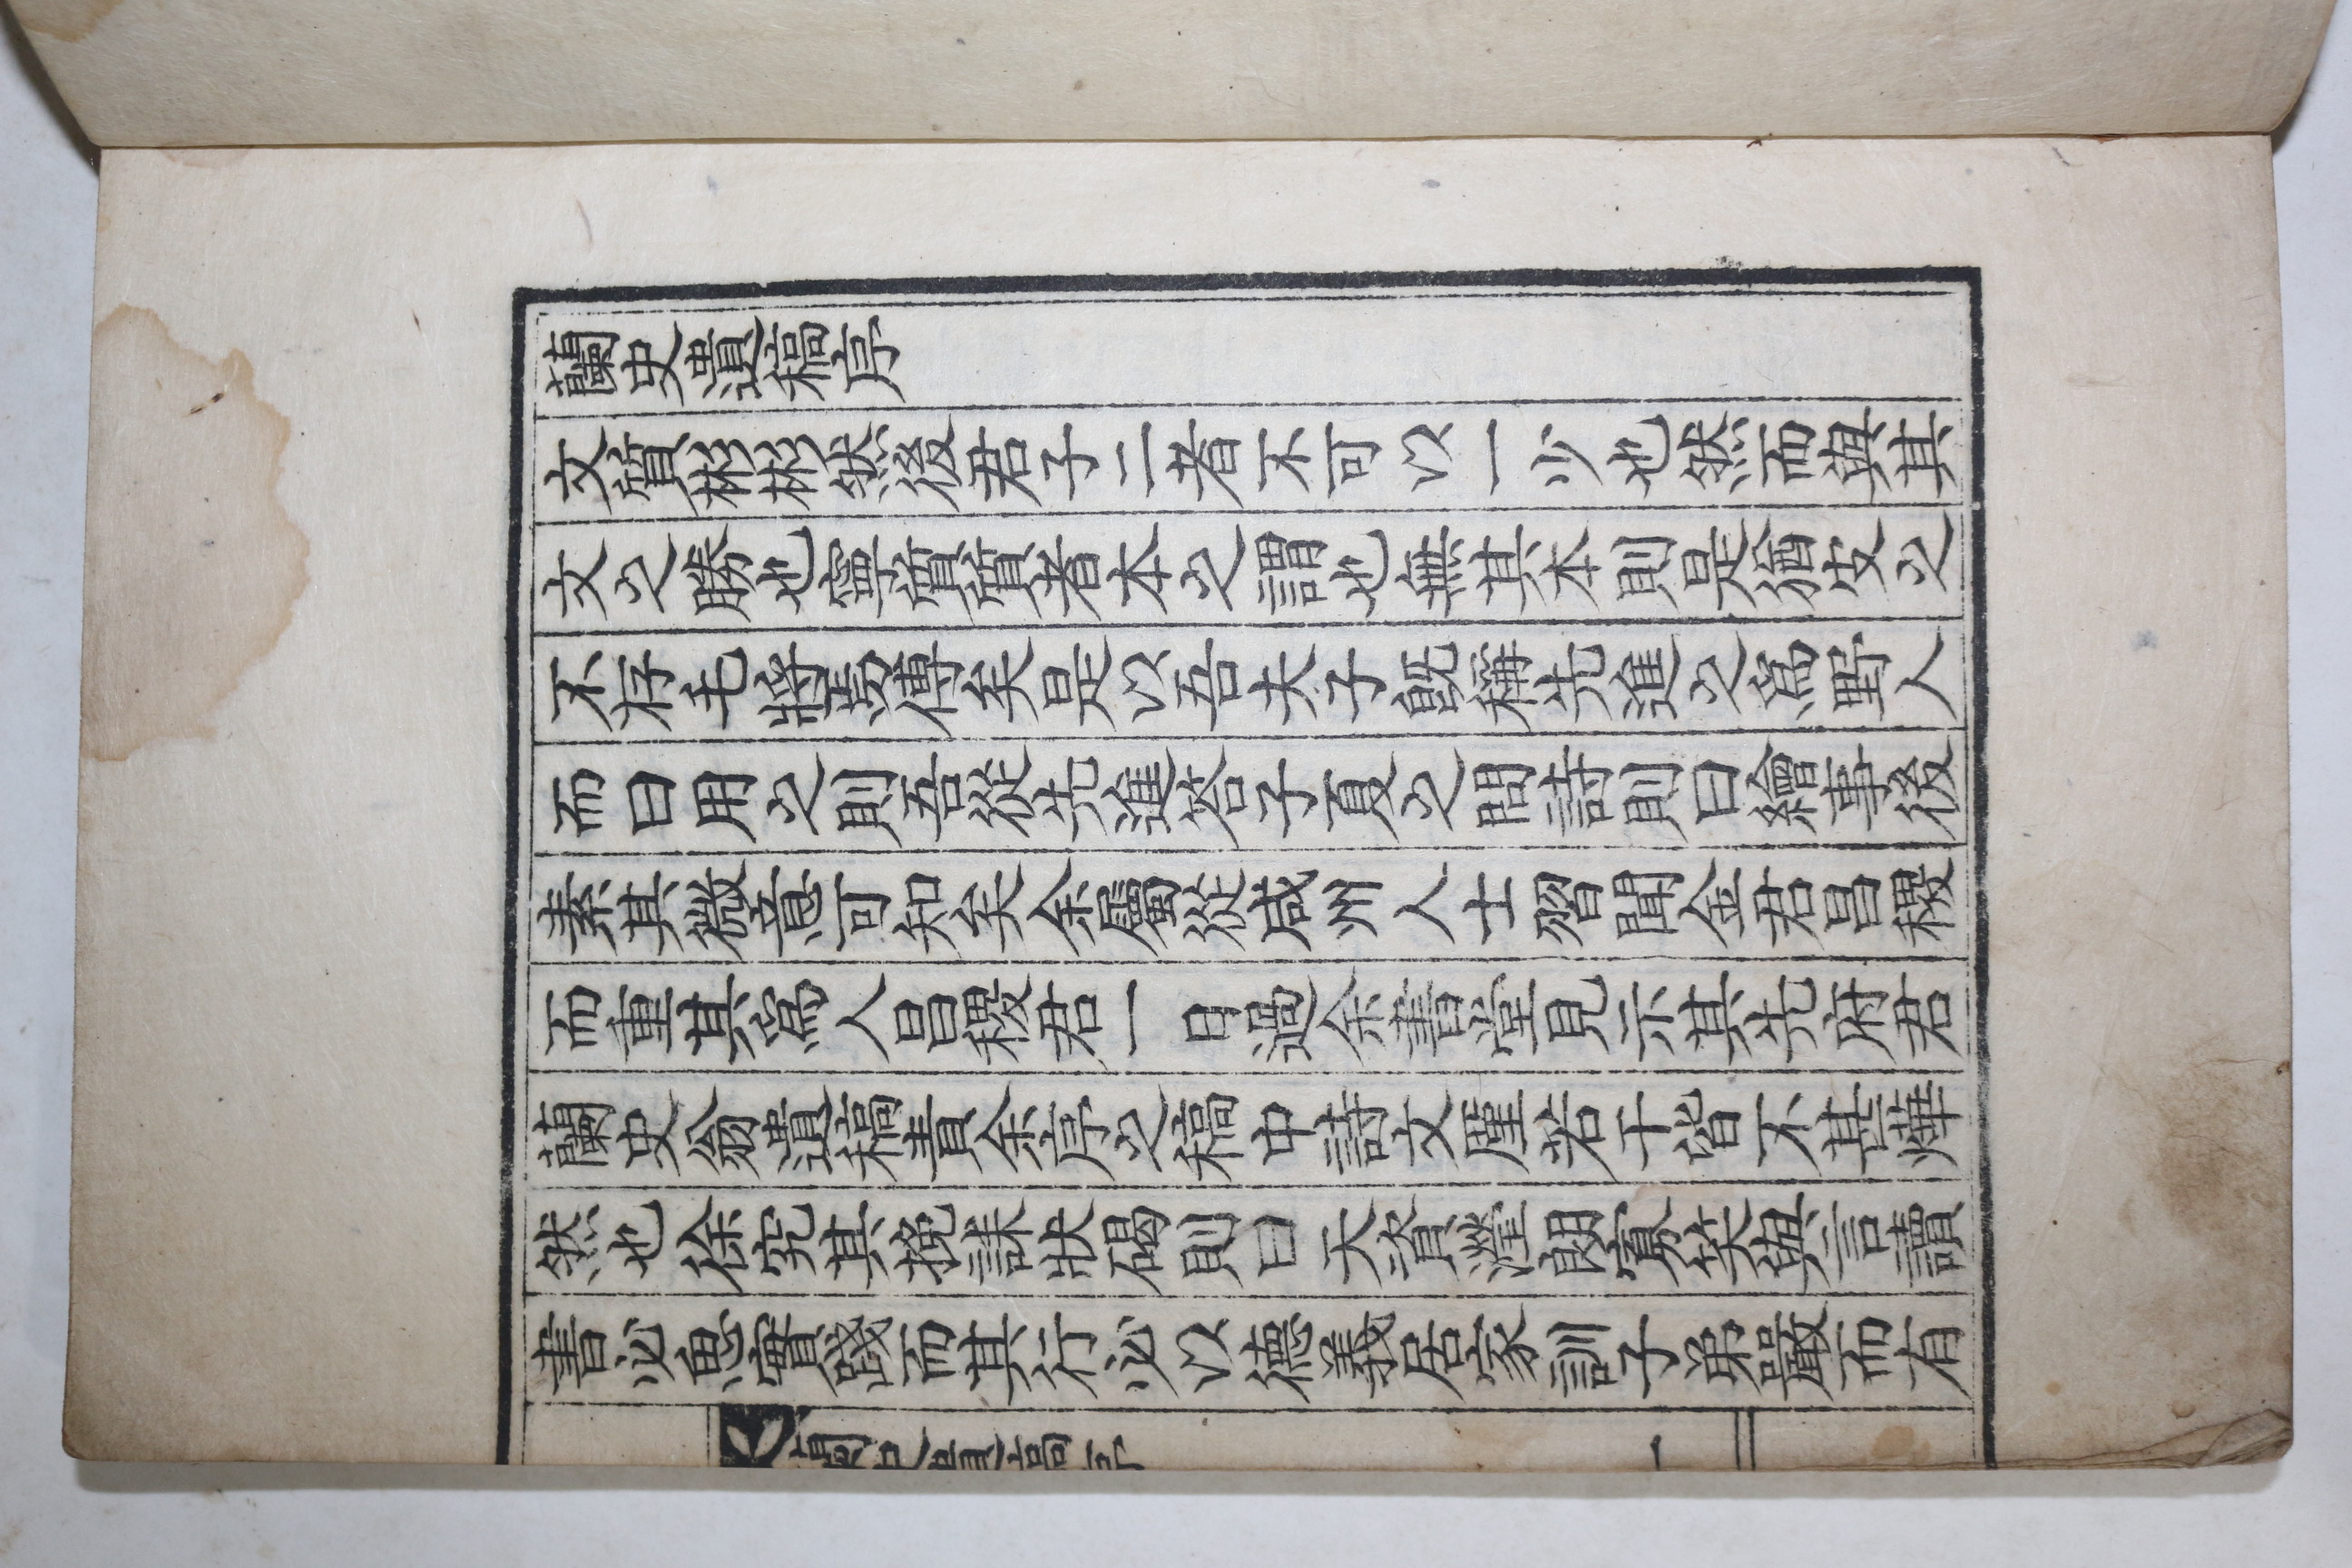 蘭史遺稿序
文質彬彬然後君子二者不可以一少也然而與其
文之勝也寧質質者本之謂也無其本則是猶皮之
不存毛將焉傅矣是以吾夫子旣稱先進之爲野人
而曰用之則吾從先進答子夏之問詩則曰繪事後
素其微意可知矣余屬從咸州人士習聞金君昌稷
而重其爲人昌稷君一日過余書堂見示其先府君
蘭史翁遺稿責余序之稿中詩文厪若干皆不甚燁
然也徐究其挽誄狀碣則曰天資瀅朗寡笑與言讀
書必思實踐而其行必以德義居家訓子弟嚴而有
蘭史遺稿序
一